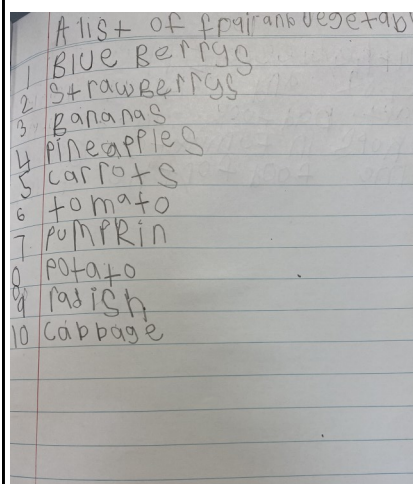 A list of fpairanb vegetabl
1 Blue Berrys
2 strawBerrys
3 Bananas
4 pineapples
5 carrots
6 tomato
7 pumpkin
8 potato
9 radish
10 cabbage